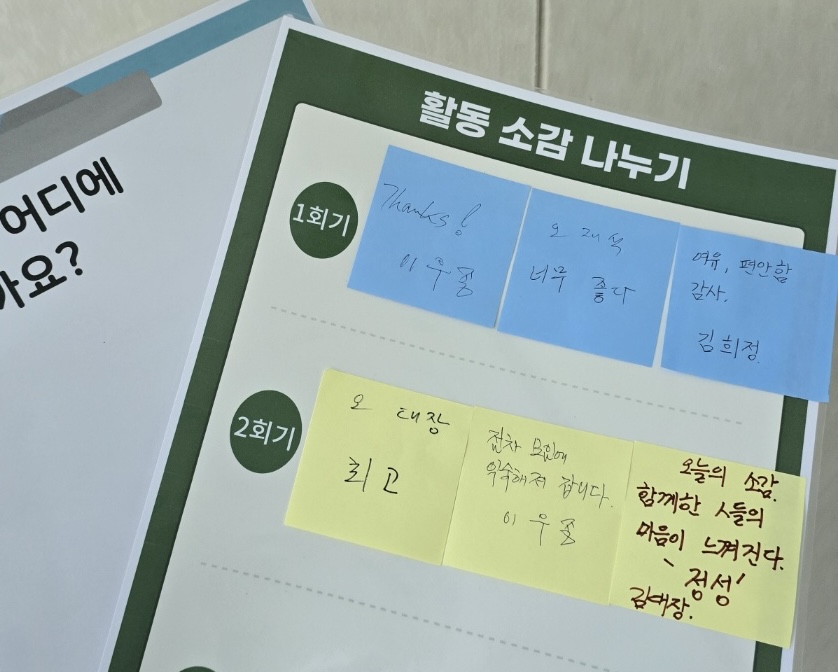 어디에
가요?
활동 소감 나누기
1회기
Thanks!
이우
오재석
너무 좋다
여유, 편안함
감사.
김희정
2회기
오 대장
최고
점차 모임에
익숙해져 갑니다.
이우
오늘의 소감.
함께한 人들의
마음이 느껴진다.
'정성'
김대장.